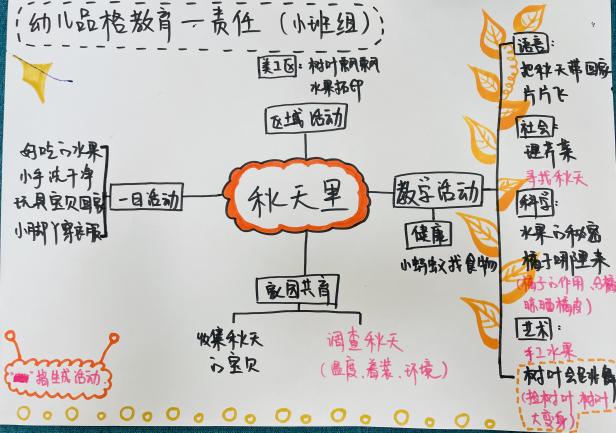 幼儿品格教育—责任（小班组）
美工区：树叶飘飘
水果拓印
区域活动
秋天里
一日活动
好吃的水果
小手洗干净
玩具宝贝回家
小脚丫穿衣服
教学活动
健康
小蚂蚁找食物
家园共育
收集秋天
的宝贝
调查秋天
（温度、着装、环境）
语言：
把秋天带回家
片片飞
社会：
理芹菜
寻找秋天
科学：
水果的秘密
橘子哪里来
艺术：
手工水果
树叶会
（捡树叶、树叶
大变身）
指生成活动